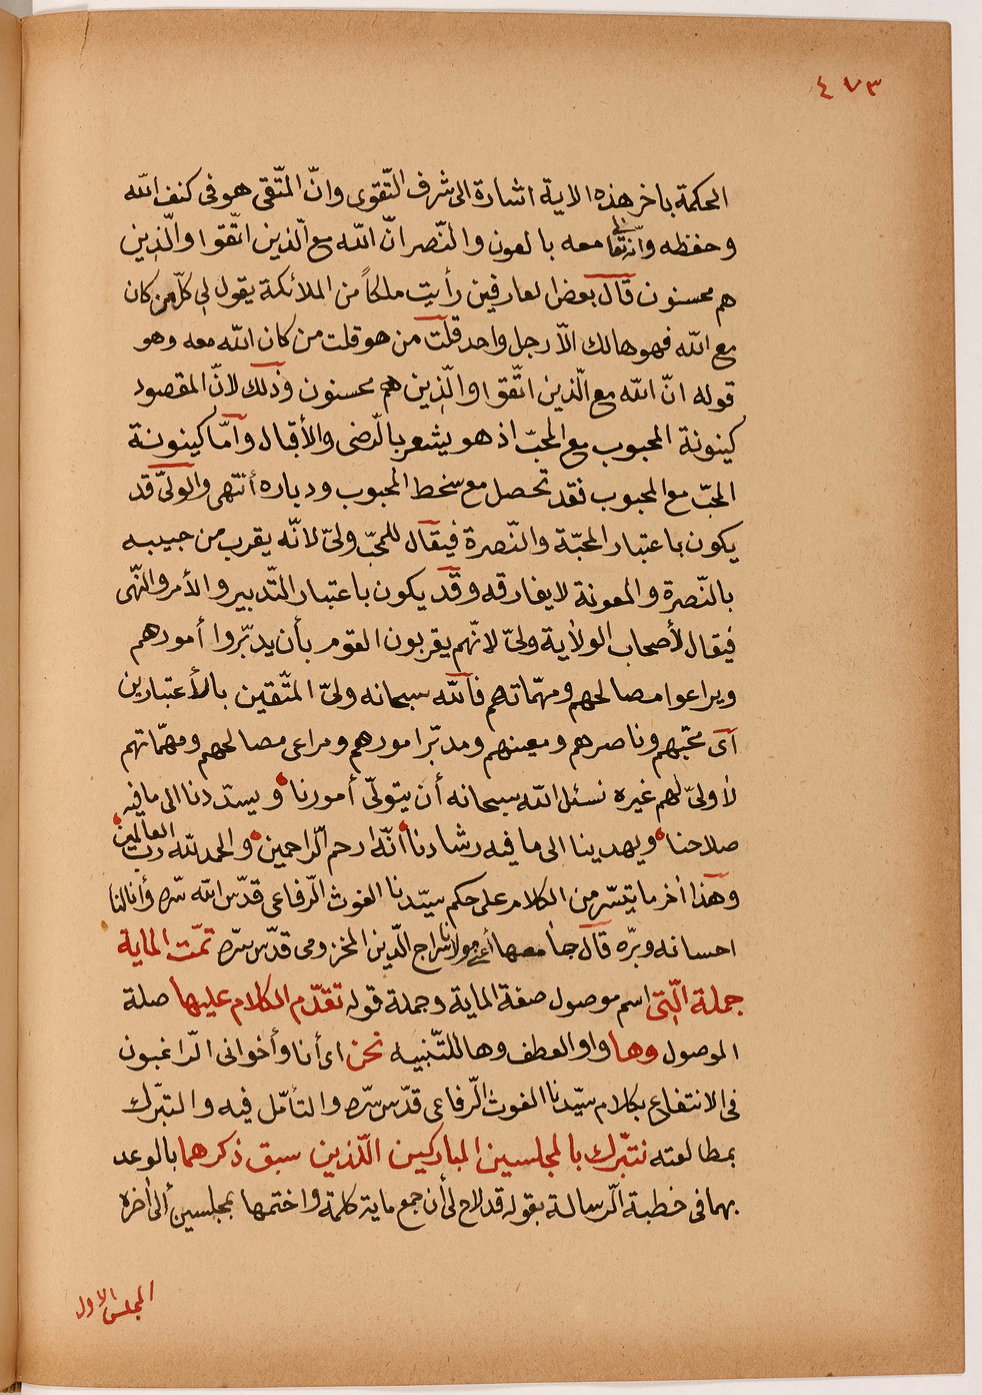 ٤٧٣
الحكمة باخر هذه الاية اشارة الى شرف التّقوى وانّ المتّقى هو فى كنف الله
وحفظه وانّه تعالى معه بالعون والنّصر انّ الله مع الّذين اتّقوا والّذين
هم محسنون قال بعض العارفين رأيت ملكاً من الملائكة يقول لى كلّ من كان
مع الله فهو هالك الاّ رجل واحد قلت من هو قلت من كان الله معه وهو
قوله انّ الله مع الّذين اتّقوا والّذين هم محسنون وذلك لانّ المقصود
كينونة المحبوب مع المحبّ اذ هو يشعر بالرّضى والأقبال وامّا كينونة
المحبّ مع المحبوب فقد تحصل مع سخط المحبوب ودباره أنتهى والولىّ قد
يكون باعتبار المحبّة والنّصرة فيقال للمحبّ ولىّ لانّه يقرب من حبيبه
بالنّصرة والمعونة لا يفارقه وقد يكون باعتبار التّدبير والأمر والنّهى
فيقال لأصحاب الولاية ولىّ لانّهم يقربون القوم بأن يدبّروا أمورهم
ويراعوا مصالحهم ومهمّاتهم فالله سبحانه ولىّ المتّقين بالأعتبارين
اى محبّهم وناصرهم ومعينهم ومدبّر امورهم ومراعى مصالحهم ومهمّاتهم
لا ولىّ لهم غيره نسئل الله سبحانه أن يتولّى أمورنا ويسددنا الى ما فيه
صلاحنا ويهدينا الى ما فيه رشادنا أنّه ارحم الرّاحمين والحمد لله ربّ العالمين
وهذا أخر ما يتسّر من الكلام على حكم سيّدنا الغوث الرّفاعى قدّس الله سّره وأنالنا
احسانه وبرّه قال جامعها أعنى مولانا سراج الدّين المخزومى قدّس سرّه تمّت الماية
جملة الّتى اسم موصول صفة الماية وجملة قوله تقدّم الكلام عليها صلة
الموصول وها واو العطف وها للتّنبيه نحن اى أنا وأخوانى الرّاغبون
فى الانتفاع بكلام سيّدنا الغوث الرّفاعى قدّس سرّه والتأمّل فيه والتبّرك
بمطالعته نتبّرك بالمجلسين المباركين اللّذين سبق ذكرهما بالوعد
بهما فى خطبة الّرسالة بقوله قد لاح لى أن جمع ماية كلمة واختمها بمجلسين ألى أخره
المجلس الاول